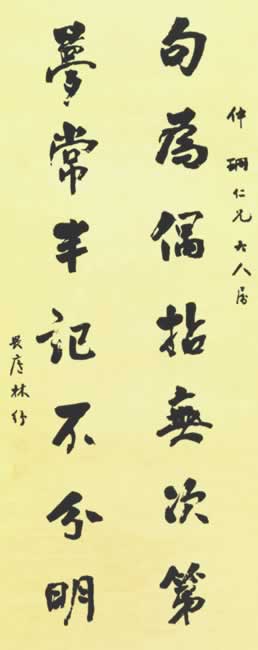 仲 仁兄大人屬
句為偶拈無次第
夢常半記不分明
畏廬林紓